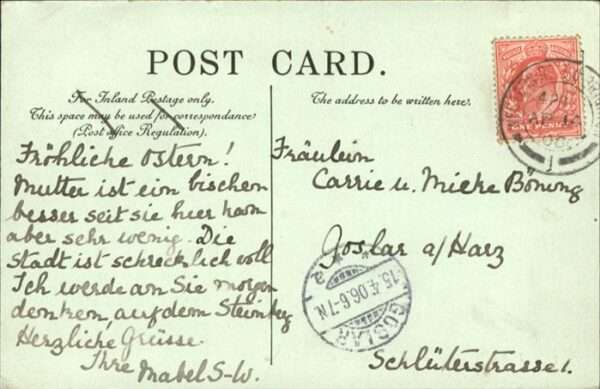 POST CARD.
For Inland Postage only.
This space may be used for correspondence
(Post Office Regulation).
The address to be written here.
Fröhliche Ostern!
Mutter ist ein bischen
besser seit sie hier kam
aber sehr wenig. Die
Stadt ist schrecklich voll
Ich werde an Sie morgen
denken, auf dem Steinberg
Herzliche Grüsse.
Ihre Mabel S-W.
Fräulein
Carrie u. Mieke Böning
Goslar a/Harz
Schlüterstrasse 1.
ONE PENNY
GOSLAR
15.4.06.6-7N.